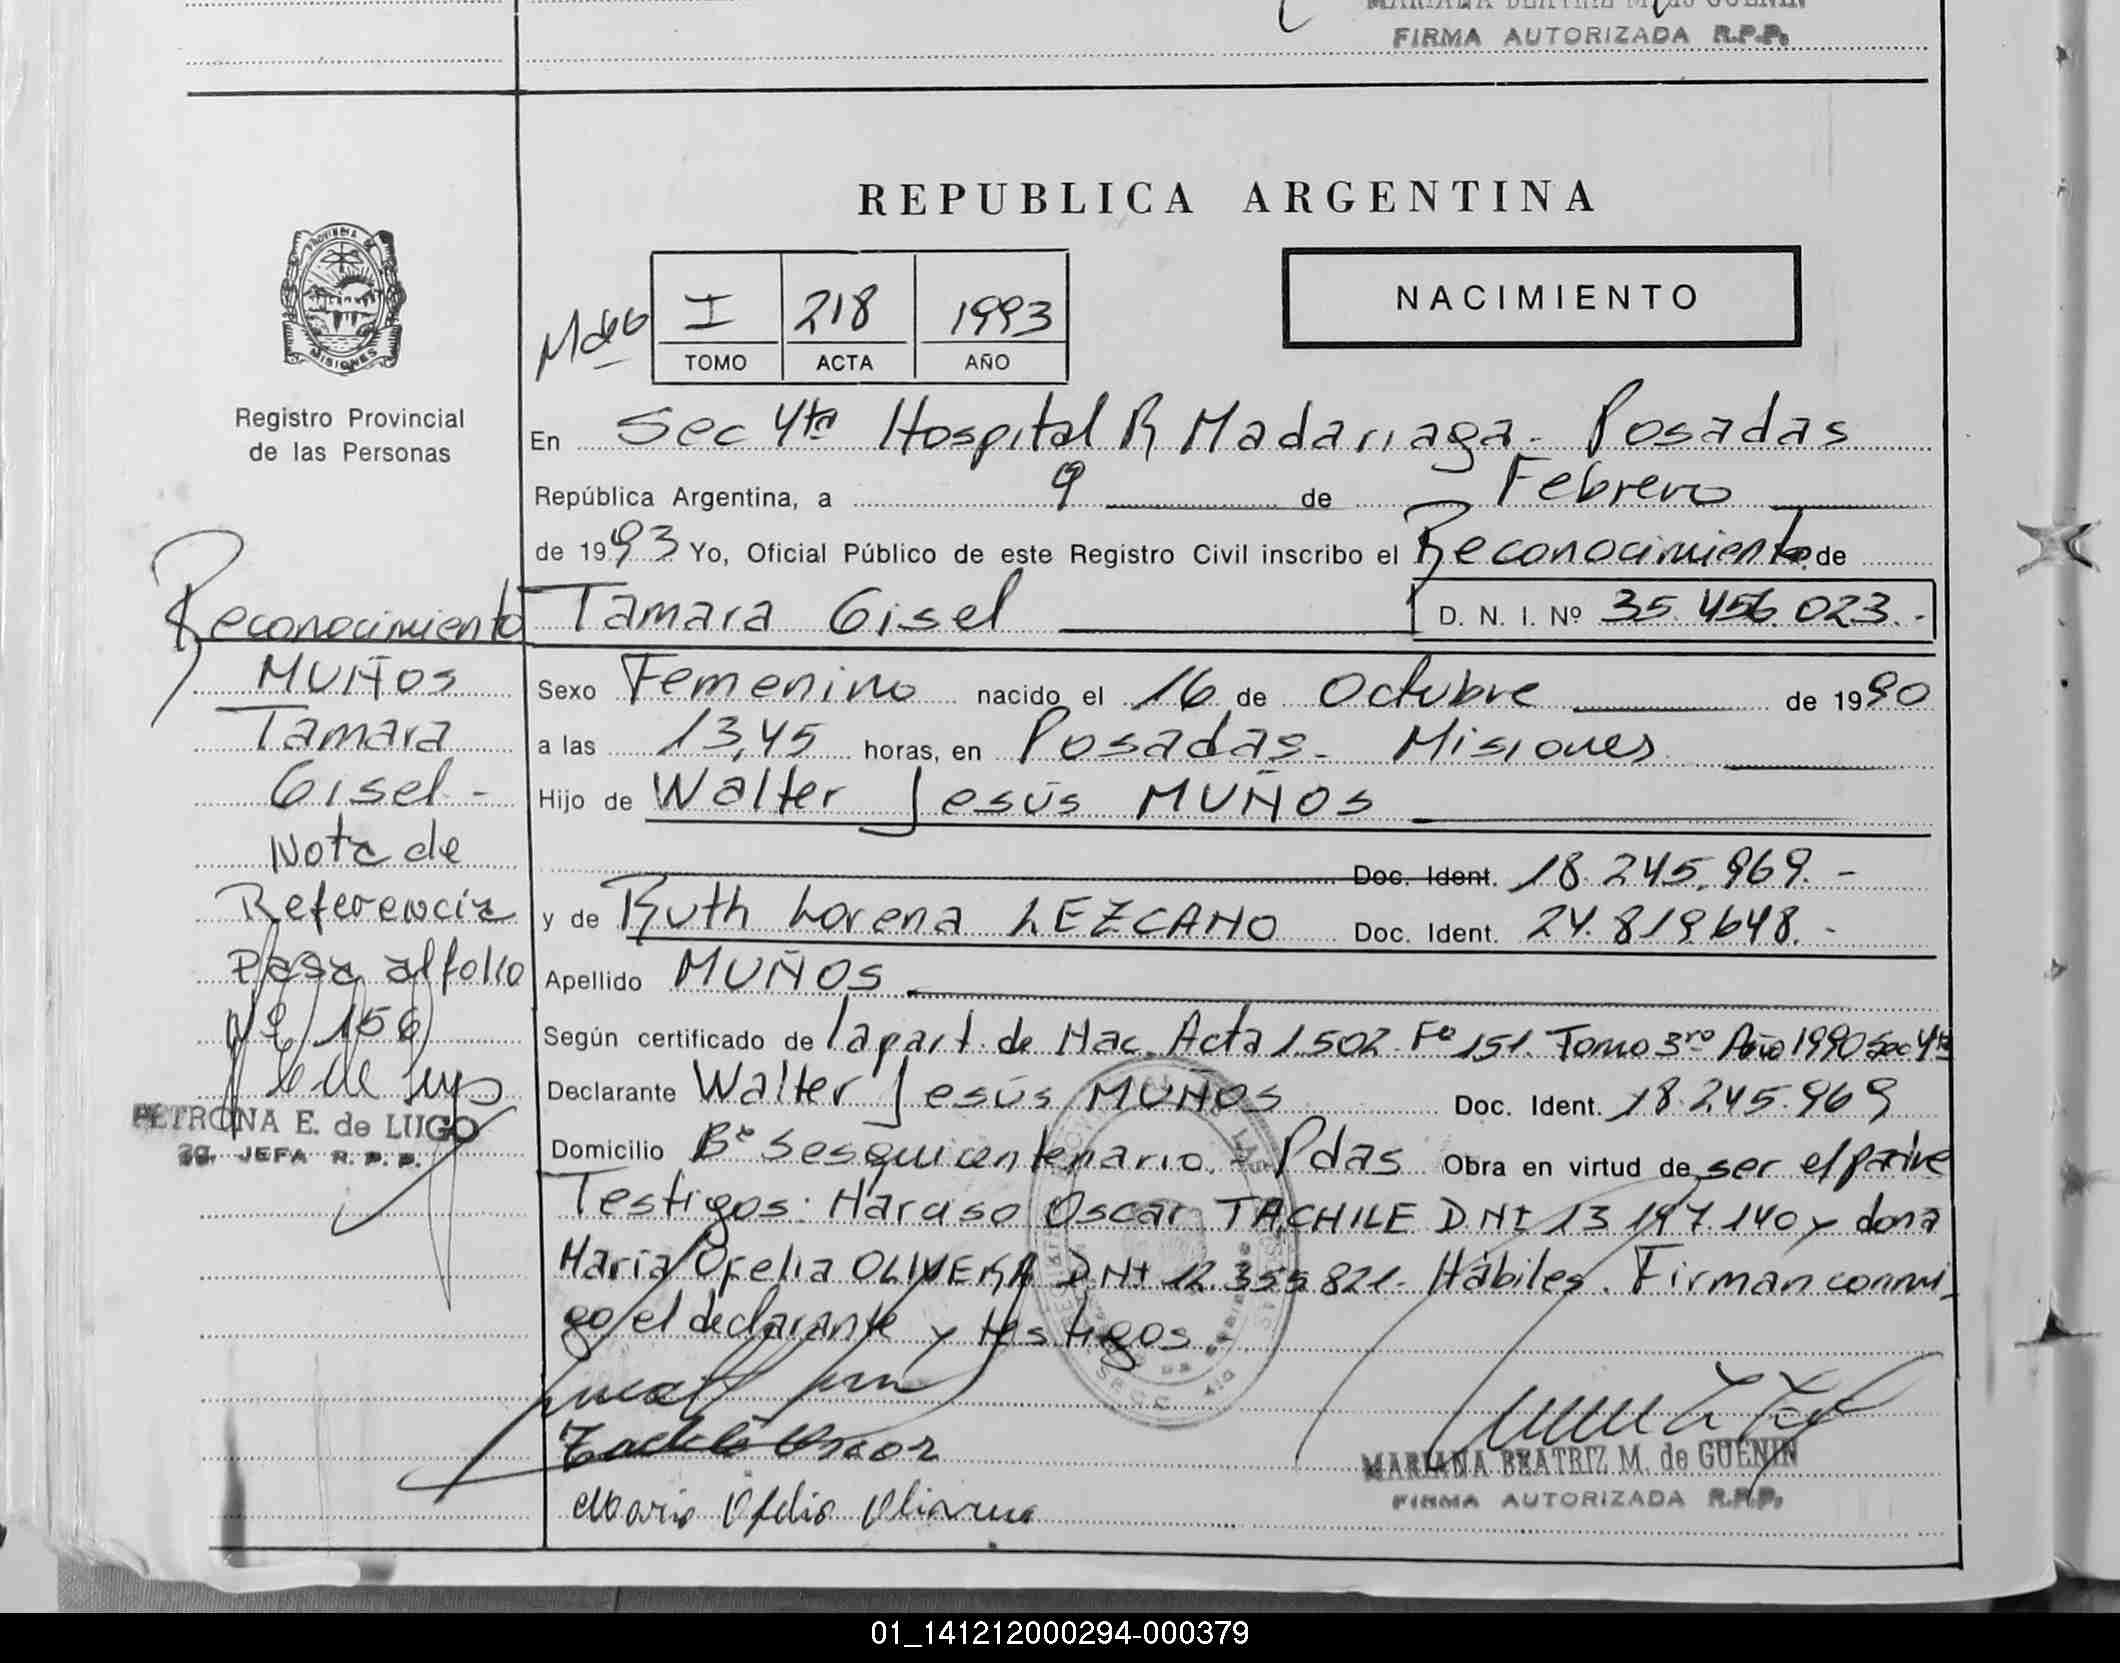 MARIANA BEATRIZ M. de GUENIN
FIRMA AUTORIZADA R.P.P.
REPUBLICA ARGENTINA
PROVINCIA DE
MISIONES
I 218 1993
TOMO ACTA AÑO
NACIMIENTO
Registro Provincial
de las Personas
En Sec 4ta Hospital R Madariaga - Posadas
República Argentina, a 9 de Febrero
de 1993 Yo, Oficial Público de este Registro Civil inscribo el Reconocimiento de
Tamara Gisel D. N. I. Nº 35.456.023.-
Reconocimiento
MUÑOS
Tamara
Gisel -
Nota de
Referencia
Pasa al folio
Nº 156
PETRONA E. de LUGO
JEFA R. P. P.
Sexo Femenino nacido el 16 de Octubre de 1990
a las 13,45 horas, en Posadas - Misiones
Hijo de Walter Jesús MUÑOS
Doc. Ident. 18.245.969.-
y de Ruth Lorena LEZCANO Doc. Ident. 24.819.648.-
Apellido MUÑOS
Según certificado de la part. de Nac. Acta 1.502 Fº 151. Tomo 3ro Año 1990 Sec 4ta
Declarante Walter Jesús MUÑOS Doc. Ident. 18.245.969
Domicilio Bº Sesquicentenario. Pdas Obra en virtud de ser el padre
Testigos: Narciso Oscar TACHILE DNI 13.197.140 y dona
Maria Ofelia OLIVERA DNI 12.355.821. Hábiles. Firman conmi-
go el declarante y testigos.-
Maria Ofelia Olivera
MARIANA BEATRIZ M. de GUENIN
FIRMA AUTORIZADA R.P.P.
01_141212000294-000379